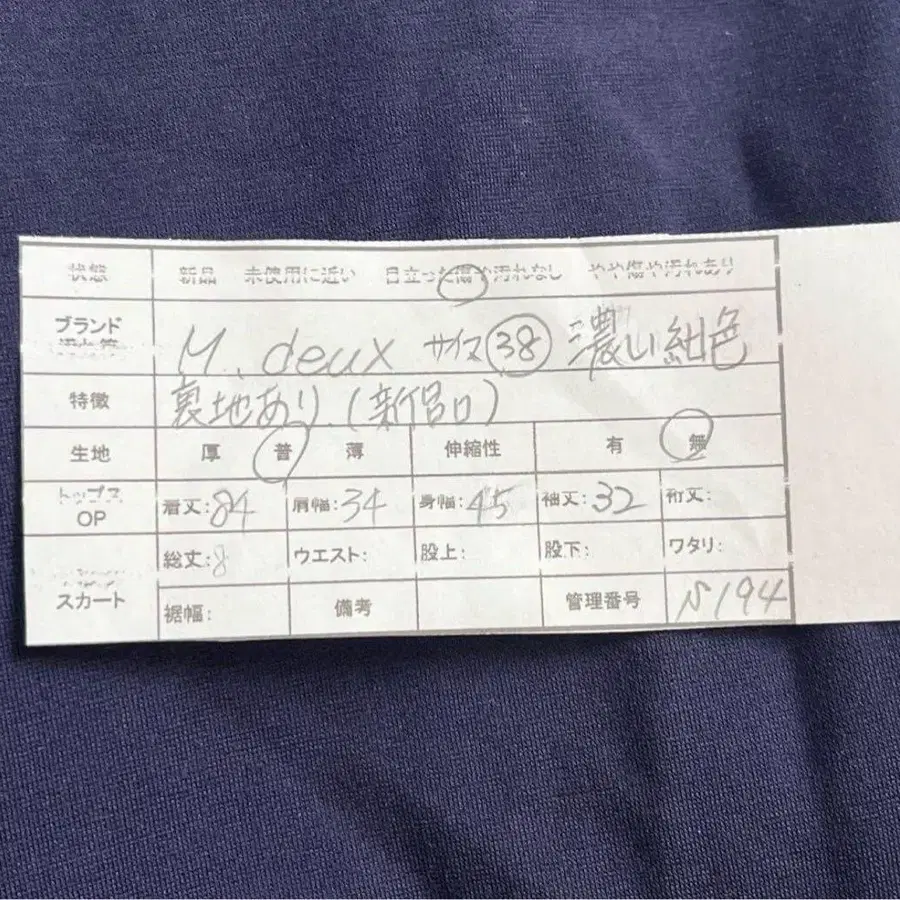 状態 新品 未使用に近い 目立った傷や汚れなし やや傷や汚れあり
ブランド M. deux サイズ 38 濃い紺色
特徴 裏地あり.(新品)
生地 厚 普 薄 伸縮性 有 無
トップス 着丈:84 肩幅:34 身幅:45 袖丈:32 裄丈:
OP
総丈:8 ウエスト: 股上: 股下: ワタリ:
スカート 裾幅: 備考 管理番号 194